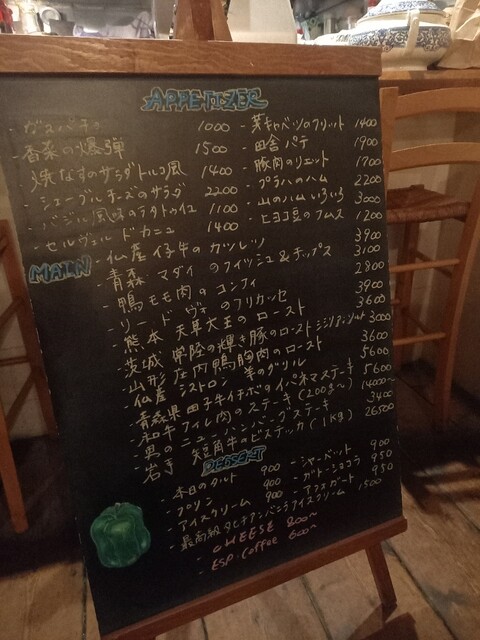 APPETIZER
・ガスパチョ 1000
・香菜の爆弾 1500
・焼なすのサラダトルコ風 1400
・シェーブルチーズのサラダ 2200
・バジル風味のラタトゥイユ 1100
・セルヴェル ド カニュ 1400
・芽キャベツのフリット 1400
・田舎パテ 1900
・豚肉のリエット 1700
・プラハのハム 2200
・山のハムいろいろ 3000
・ヒヨコ豆のフムス 1200
MAIN
・仏産 仔牛のカツレツ 3900
・青森 マダイのフィッシュ&チップス 3100
・鴨モモ肉のコンフィ 2800
・リ・ド・ヴォーのフリカッセ 3900
・熊本 天草大王のロースト 3600
・茨城 常陸の輝き豚のロースト 3000
・山形 庄内鴨胸肉のロースト 3600
・仏産 シストロン 羊のグリル 5600
・青森県田子牛イチボのイベネマステーキ 5600
・和牛フィレ肉のステーキ (200g~) 14000~
・男のニューハンバーグステーキ 3400
・岩手 短角牛のビステッカ (1kg) 26500
DESSERT
・本日のタルト 900
・プリン 900
・アイスクリーム 900
・最高級タヒチアンバニラアイスクリーム 1500
・シャーベット 900
・ガトーショコラ 950
・アフォガート 950
・CHEESE 800~
・ESP. Coffee 600~